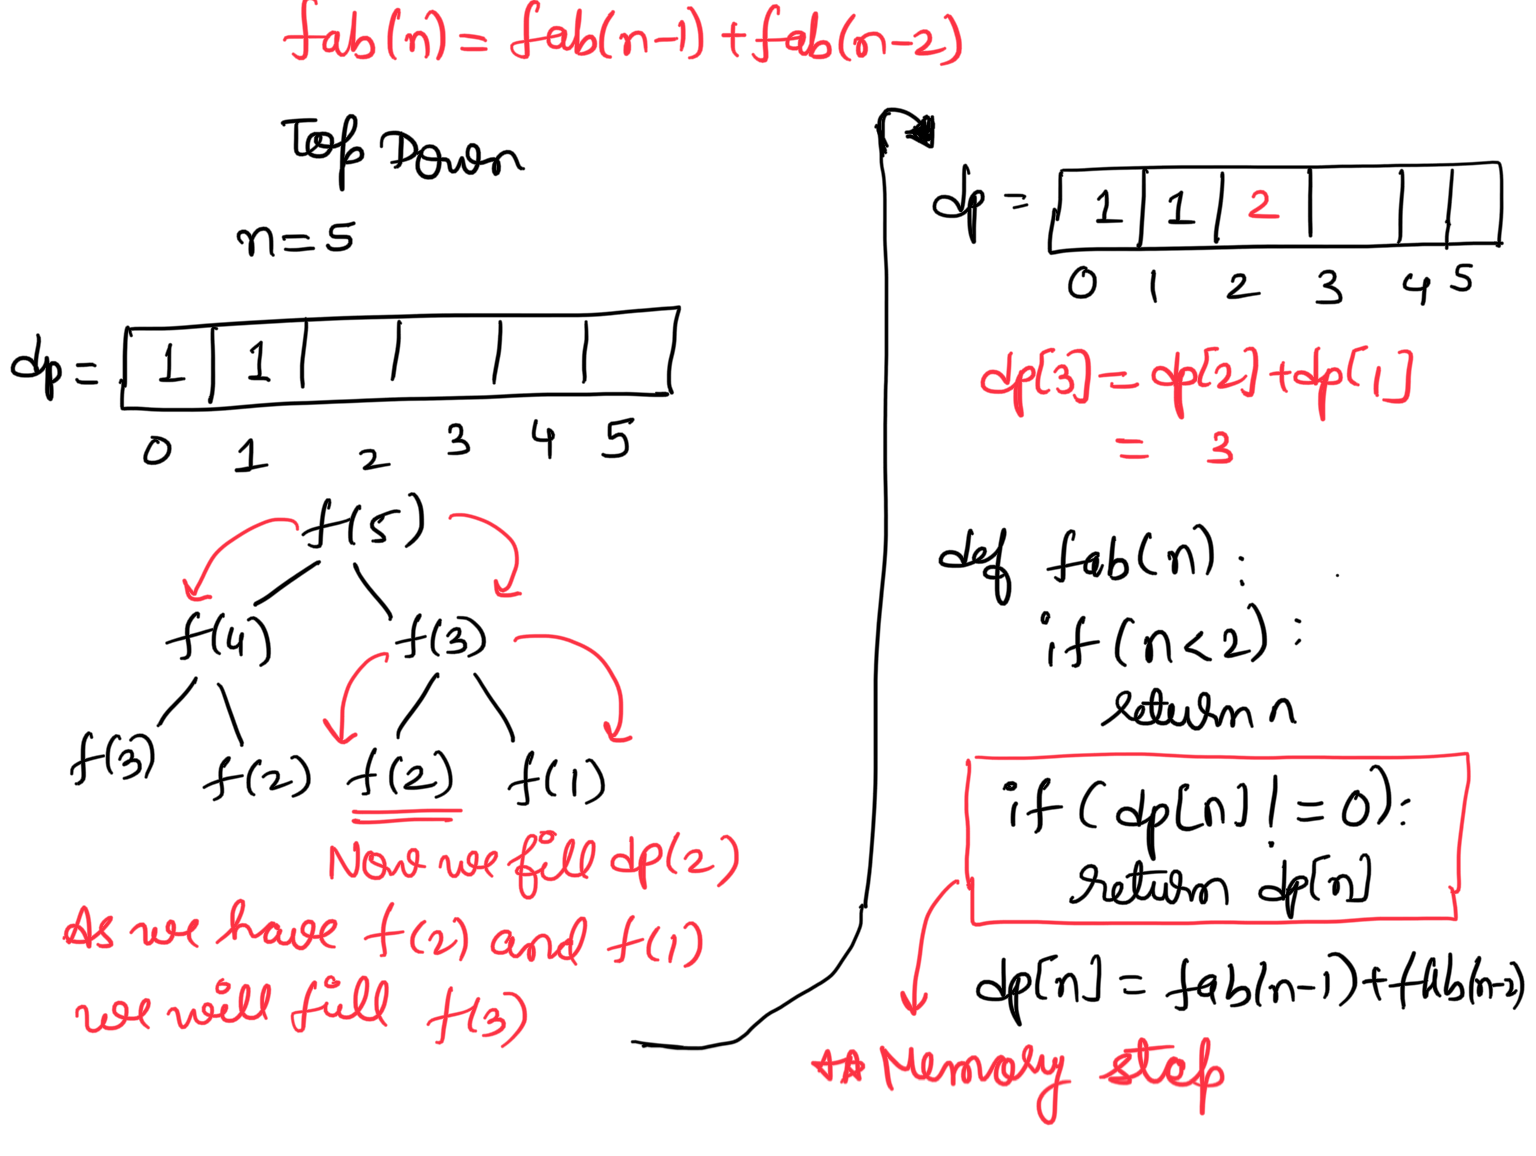 fab(n) = fab(n-1) + fab(n-2)
Top Down
n = 5
dp = 1 1
0 1 2 3 4 5
f(5)
f(4) f(3)
f(3) f(2) f(2) f(1)
Now we fill dp(2)
As we have f(2) and f(1)
we will fill f(3)
dp = 1 1 2
0 1 2 3 4 5
dp[3] = dp[2] + dp[1]
= 3
def fab(n):
if (n < 2):
return n
if (dp[n] != 0):
return dp[n]
dp[n] = fab(n-1) + fab(n-2)
** Memory step